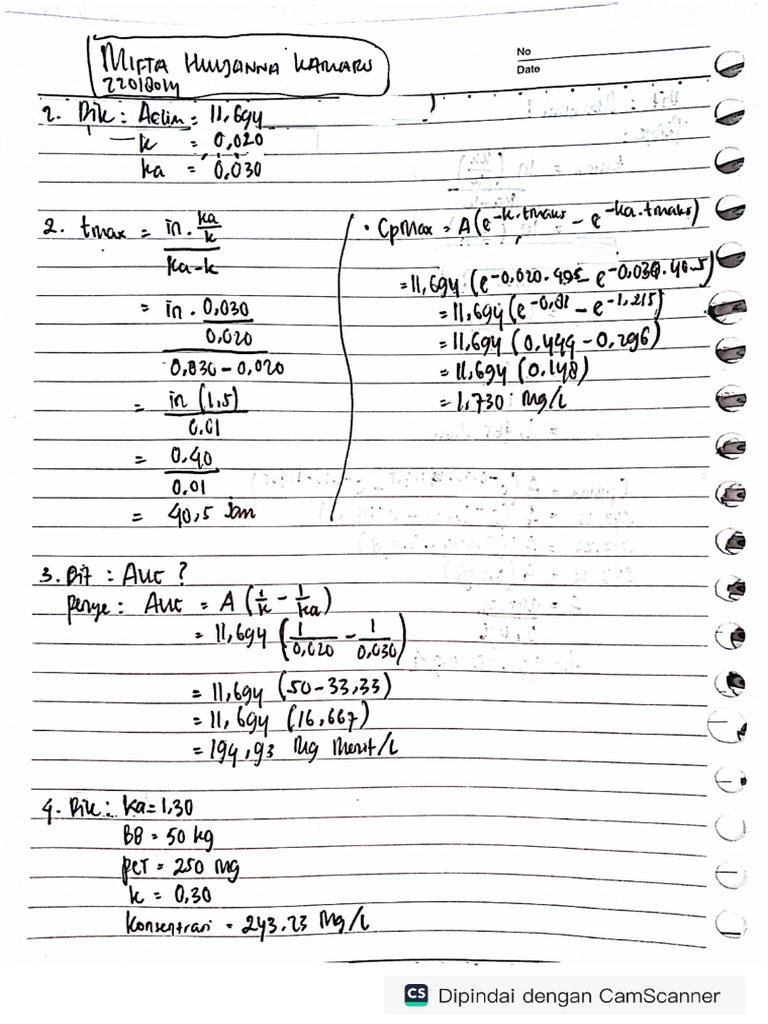 MIFTA HUUJANNA KAMARU
22018014
No
Date
1. Dik : Aelim = 11,694
k = 0,020
ka = 0,030
2. tmax = in . ka/k
ka-k
= in . 0,030
0,020
0,030 - 0,020
= in (1,5)
0.01
= 0.40
0.01
= 40,5 Jam
• CpMax = A(e^-k.tmaks - e^-ka.tmaks)
= 11,694 (e^-0,020.40,5 - e^-0,030.40.5)
= 11,694 (e^-0,81 - e^-1,215)
= 11,694 (0.444 - 0,296)
= 11,694 (0.148)
= 1,730 Mg/L
3. Dit : AUC ?
penye : AUC = A (1/k - 1/ka)
= 11,694 (1/0,020 - 1/0,030)
= 11,694 (50-33,33)
= 11,694 (16,667)
= 194,93 Mg Menit/L
4. Dik : ka = 1,30
BB = 50 kg
PCT = 250 Mg
k = 0,30
Konsentrasi = 243.23 Mg/L
CS Dipindai dengan CamScanner